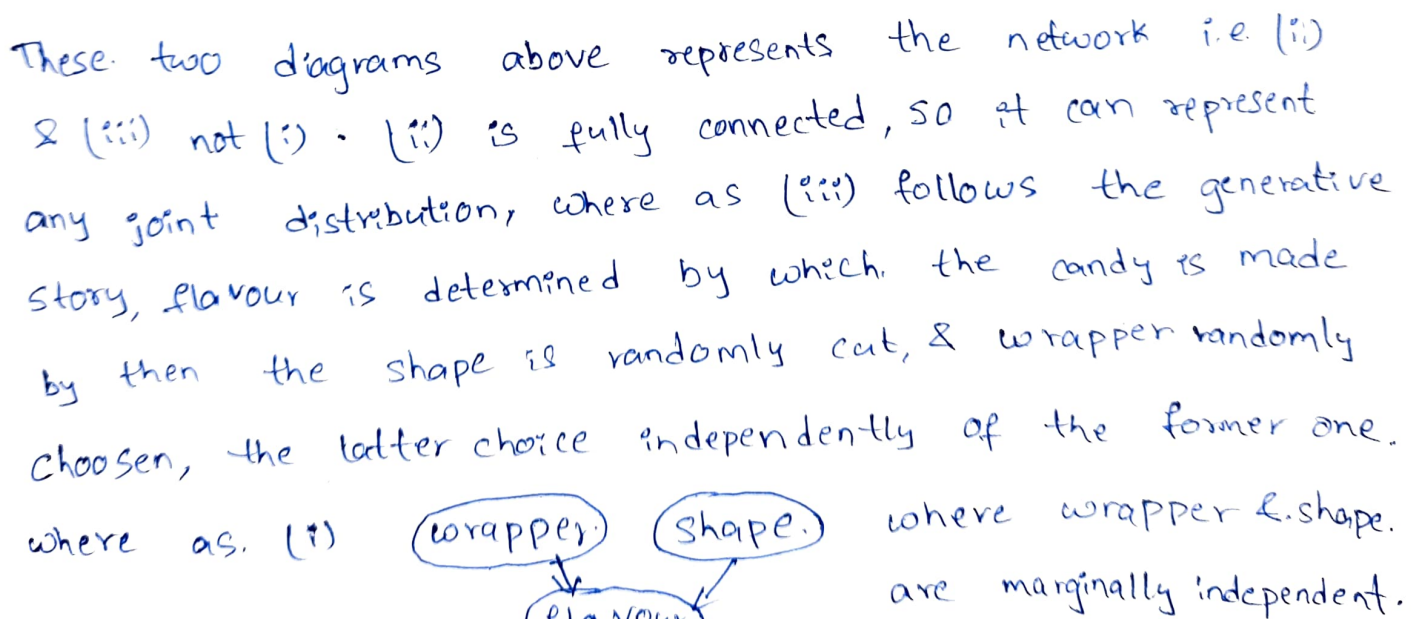 These two diagrams above represents the network i.e. (ii)
& (iii) not (i). (ii) is fully connected, so it can represent
any joint distribution, where as (iii) follows the generative
story, flavour is determined by which the candy is made
by then the shape is randomly cut, & wrapper randomly
choosen, the latter choice independently of the former one.
where as. (i) wrapper. shape. where wrapper & shape.
Flavour are marginally independent.